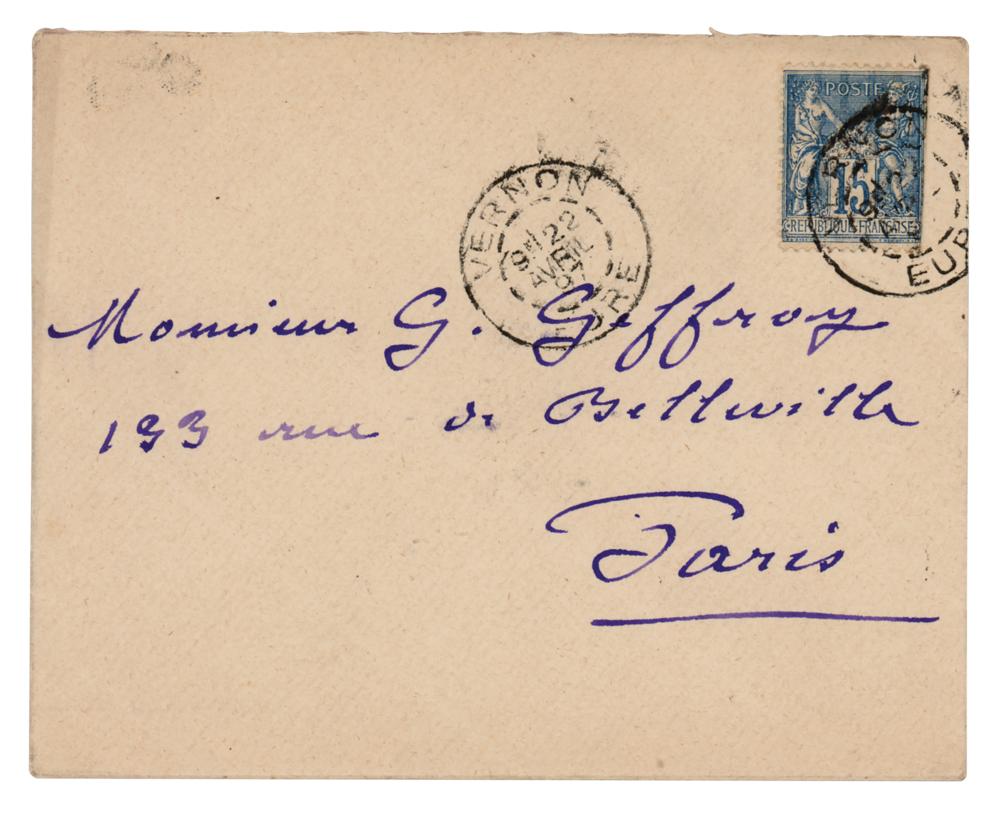 POSTES
15
REPUBLIQUE FRANÇAISE
VERNON
22
AVRIL
EURE
EUR
Monsieur G. Geffroy
133 rue de Belleville
Paris